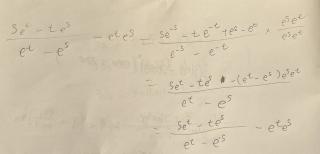 (se^t - te^s)/(e^t - e^s) - e^t e^s = (se^-s - te^-t + e^t - e^s)/(e^-s - e^-t) × (e^s e^t)/(e^s e^t)
= (se^t - te^s - (e^t - e^s)e^s e^t)/(e^t - e^s)
= (se^t - te^s)/(e^t - e^s) - e^t e^s